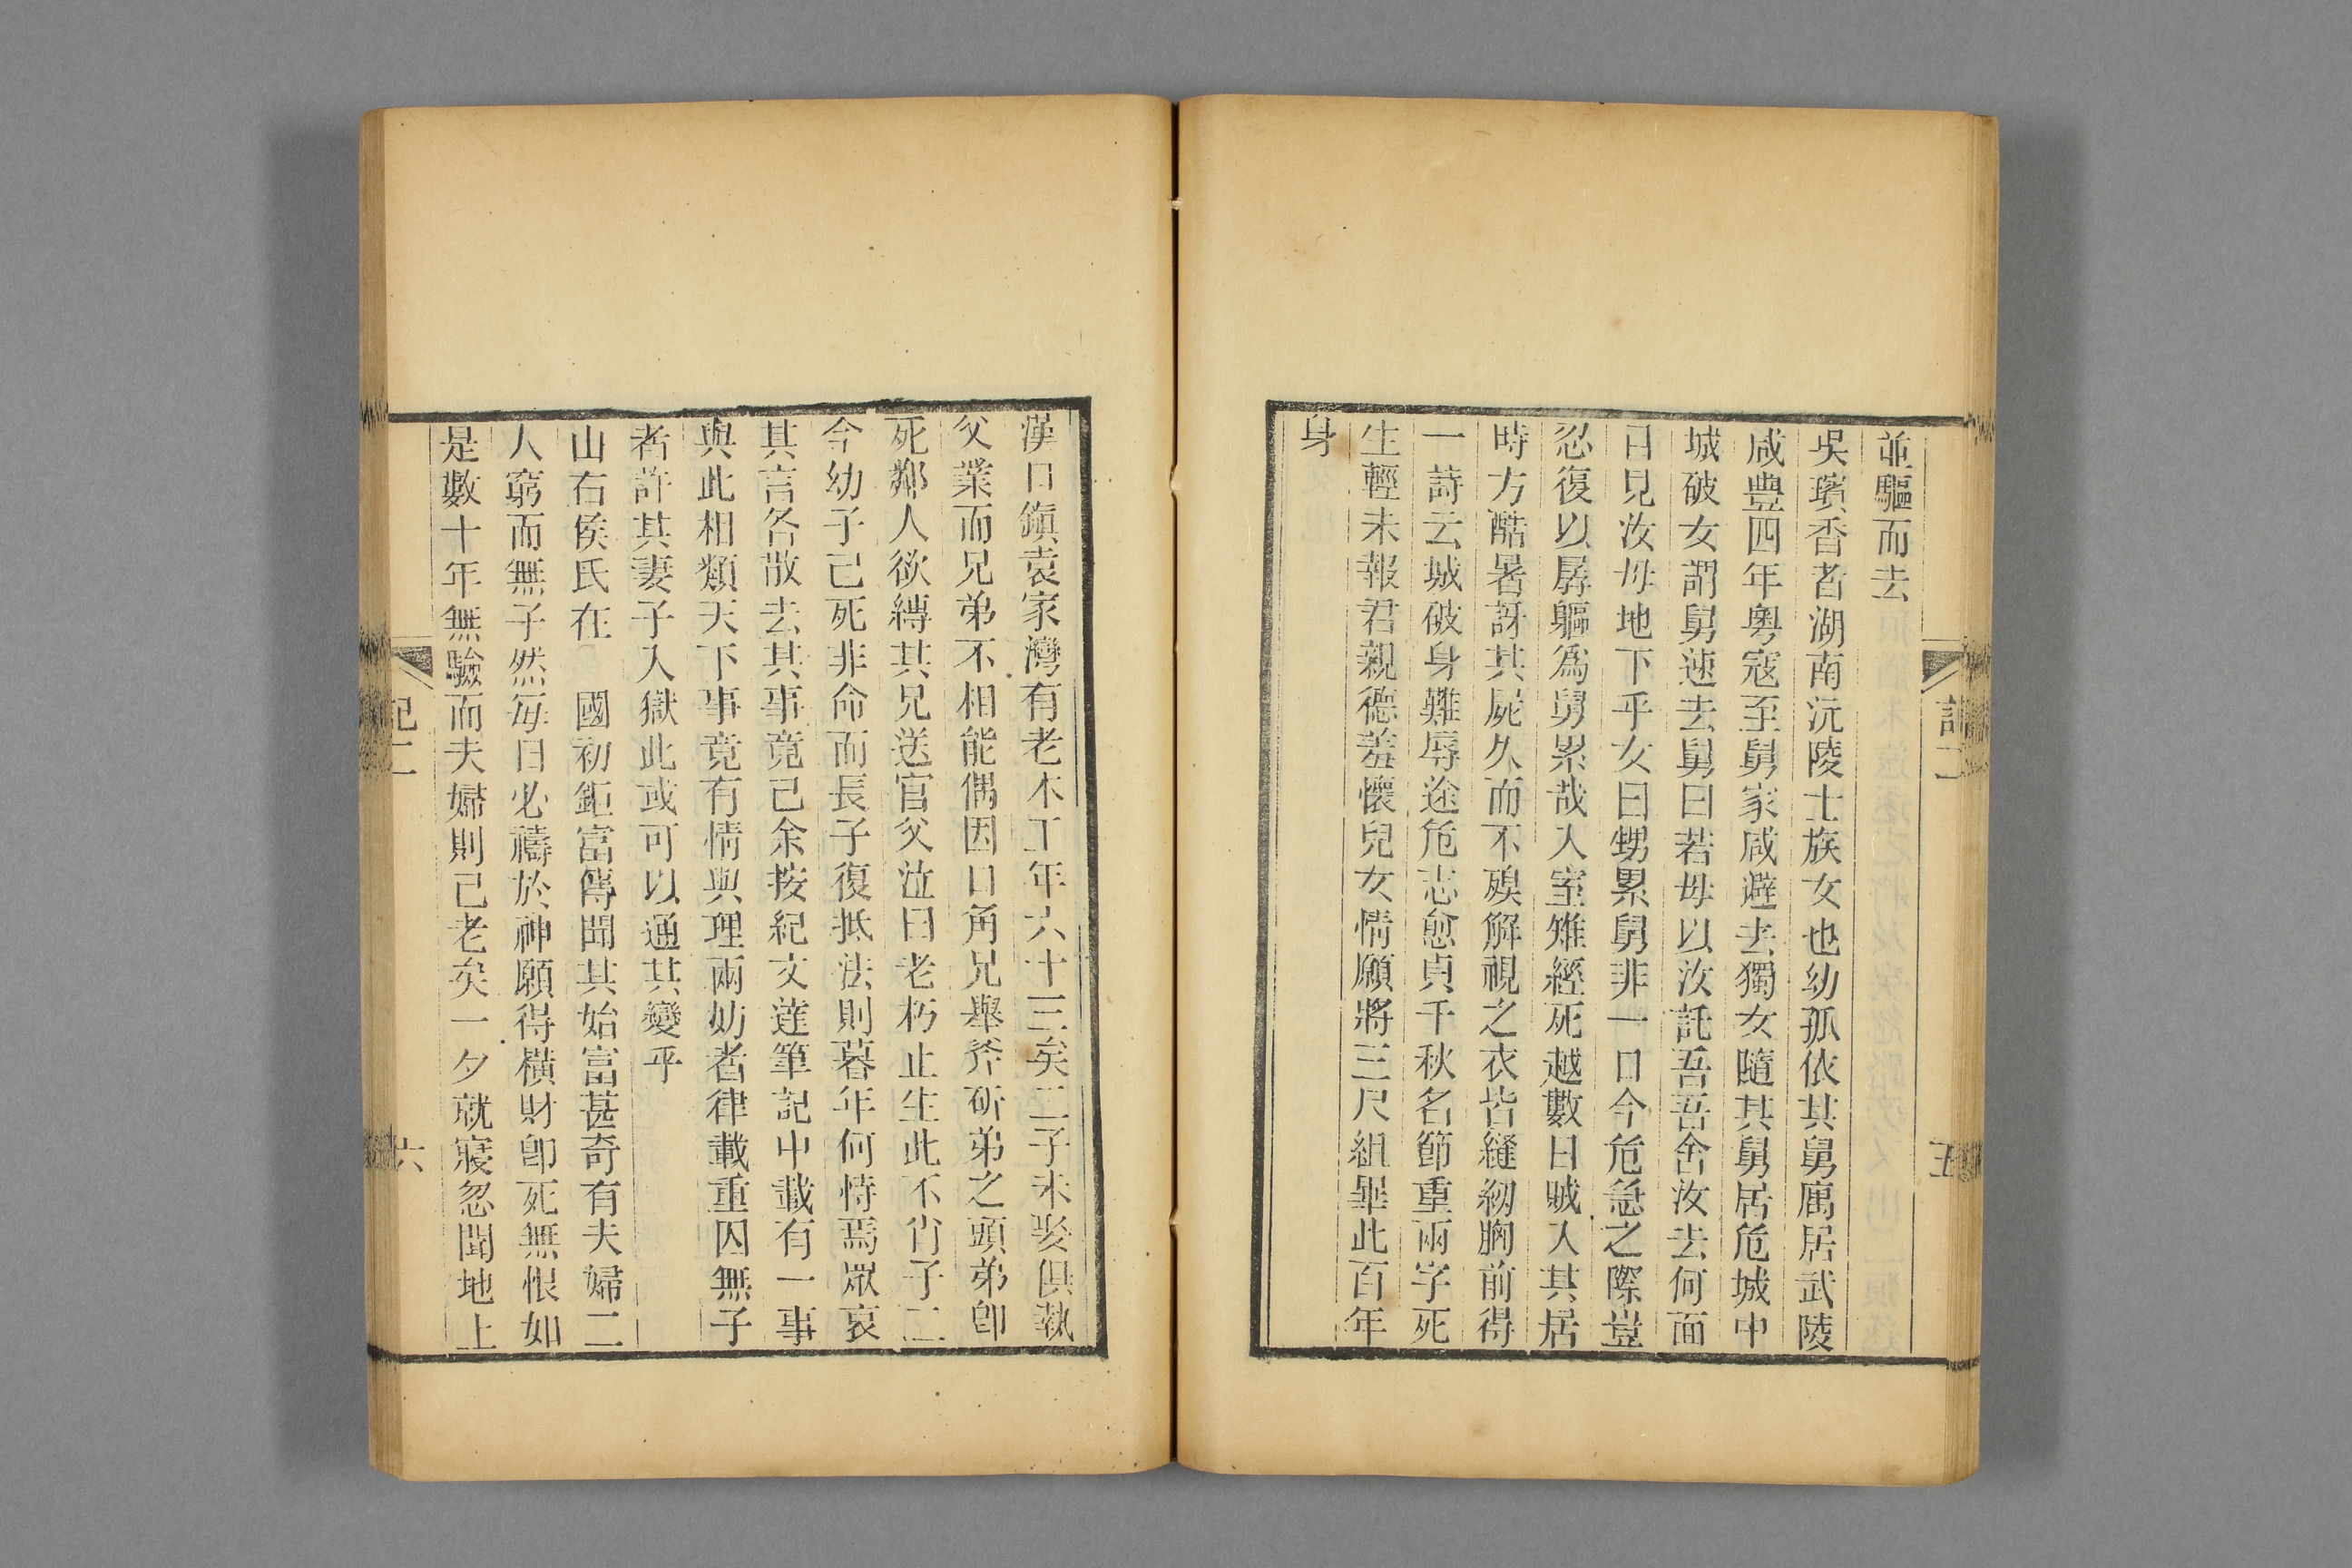 並驅而去
吳璸香者湖南沅陵士族女也幼孤依其舅廡居武陵
咸豊四年粵寇至舅家咸避去獨女隨其舅居危城中
城破女謂舅速去舅曰若母以汝託吾吾舍汝去何面
日見汝母地下乎女曰甥累舅非一口今危急之際豈
忍復以孱軀爲舅累哉入室雉經死越數日賊入其居
時方酷暑訝其屍久而不殠解視之衣皆縫紉胸前得
一詩云城破身難辱途危志愈貞千秋名節重兩字死
生輕未報君親德羞懷兒女情願將三尺組畢此百年
身
記二
五
漢口鎭袁家灣有老木工年六十三矣二子未娶俱執
父業而兄弟不相能偶因口角兄舉斧斫弟之頭弟卽
死鄰人欲縛其兄送官父泣曰老朽止生此不肖子二
今幼子已死非命而長子復抵法則暮年何恃焉眾哀
其言各散去其事竟已余按紀文達筆記中載有一事
與此相類天下事竟有情與理兩妨者律載重囚無子
者許其妻子入獄此或可以通其變乎
山右侯氏在 國初鉅富傳聞其始富甚奇有夫婦二
人窮而無子然每日必禱於神願得橫財卽死無恨如
是數十年無驗而夫婦則已老矣一夕就寢忽聞地上
記二
六